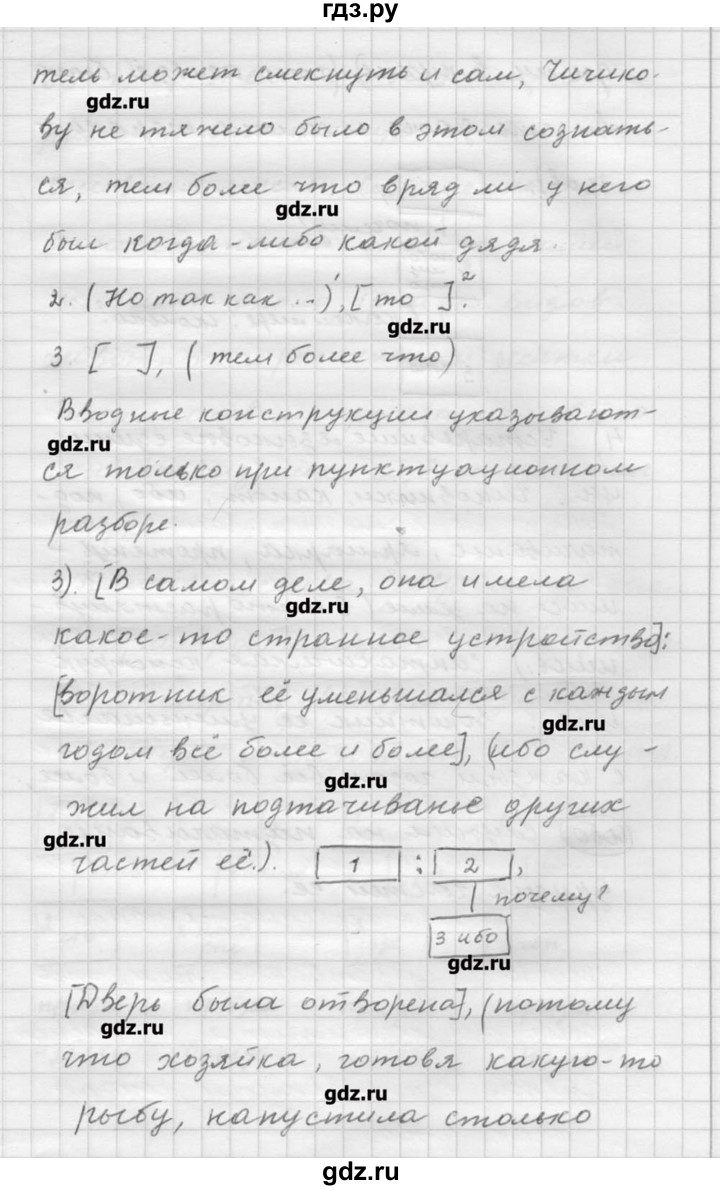 гдз.ру
тель может смекнуть и сам, Чичико-
gdz.ru
ву не тяжело было в этом сознать-
ся, тем более что вряд ли у него
gdz.ru
был когда-либо какой дядя.
2. (Но так как ...)¹, [то ]².
gdz.ru
3. [ ], (тем более что)
Вводные конструкции указывают-
gdz.ru
ся только при пунктуационном
разборе.
3). [В самом деле, она имела
gdz.ru
какое-то странное устройство]:
[воротник её уменьшался с каждым
gdz.ru
годом всё более и более], (ибо слу-
gdz.ru
жил на подтачиванье других
gdz.ru
частей её.). 1 : 2 ,
почему?
3 ибо
gdz.ru
[Дверь была отворена], (потому
gdz.ru
что хозяйка, готовя какую-то
gdz.ru
рыбу, напустила столько
gdz.ru